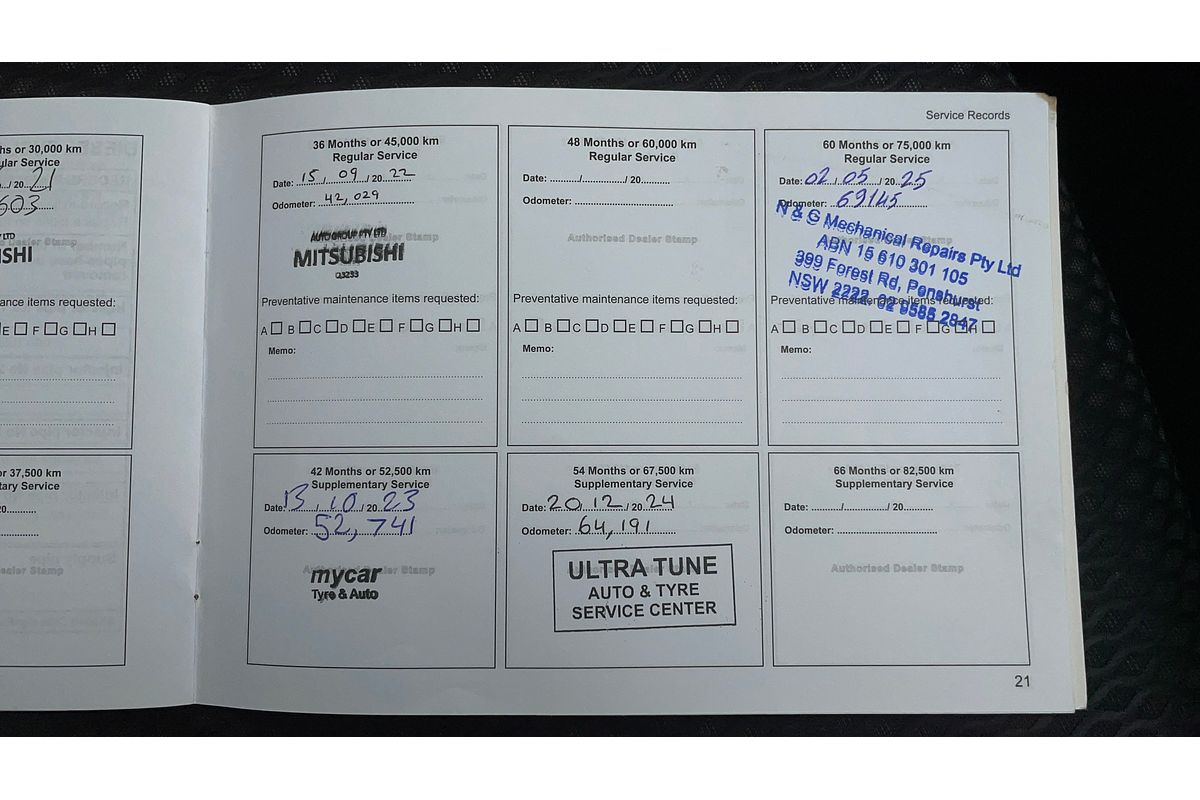 Service Records
hs or 30,000 km
ular Service
.../ 20...21
603
Y LTD
aler Stamp
ISHI
ance items requested:
E F G H
or 37,500 km
tary Service
20
aler Stamp
36 Months or 45,000 km
Regular Service
Date: 15 / 09 / 20 22
Odometer: 42,029
AUTO GROUP PTY LTD
MITSUBISHI
Preventative maintenance items requested:
A B C D E F G H
Memo:
48 Months or 60,000 km
Regular Service
Date: ........../.............../ 20..........
Odometer: ...................................
Authorised Dealer Stamp
Preventative maintenance items requested:
A B C D E F G H
Memo:
60 Months or 75,000 km
Regular Service
Date: 02 / 05 / 20 25
Odometer: 69145
N & G Mechanical Repairs Pty Ltd
ABN 15 610 301 105
399 Forest Rd, Penshurst
NSW 2222, 02 9585 2847
Preventative maintenance items requested:
A B C D E F G H
Memo:
42 Months or 52,500 km
Supplementary Service
Date: 13 / 10 / 20 23
Odometer: 52,741
mycar
Tyre & Auto
54 Months or 67,500 km
Supplementary Service
Date: 20 12 / 20 24
Odometer: 64,191
ULTRA TUNE
AUTO & TYRE
SERVICE CENTER
66 Months or 82,500 km
Supplementary Service
Date: ........../.............../ 20..........
Odometer: ...................................
Authorised Dealer Stamp
21